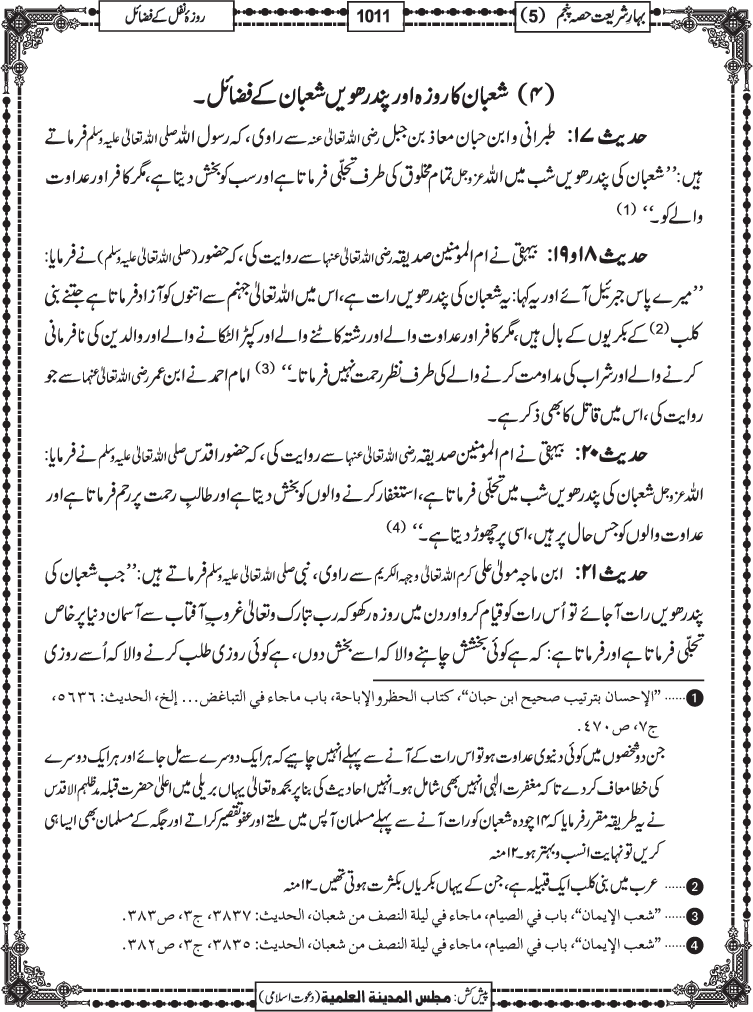 بہارِ شریعت حصہ پنجم (5)
1011
روزۂ نفل کے فضائل
(۴) شعبان کا روزہ اور پندرھویں شعبان کے فضائل۔
حدیث ۱۷: طبرانی و ابن حبان معاذ بن جبل رضی اللہ تعالیٰ عنہ سے راوی، کہ رسول اللہ صلی اللہ تعالیٰ علیہ وسلم فرماتے
ہیں: ’’شعبان کی پندرھویں شب میں اللہ عزوجل تمام مخلوق کی طرف تجلّی فرماتا ہے اور سب کو بخش دیتا ہے، مگر کافر اور عداوت
والے کو۔‘‘ (1)
حدیث ۱۸ و ۱۹: بیہقی نے ام المومنین صدیقہ رضی اللہ تعالیٰ عنہا سے روایت کی، کہ حضور (صلی اللہ تعالیٰ علیہ وسلم) نے فرمایا:
’’میرے پاس جبرئیل آئے اور یہ کہا: یہ شعبان کی پندرھویں رات ہے، اس میں اللہ تعالیٰ جہنم سے اتنوں کو آزاد فرماتا ہے جتنے بنی
کلب (2) کے بکریوں کے بال ہیں، مگر کافر اور عداوت والے اور رشتہ کاٹنے والے اور کپڑا لٹکانے والے اور والدین کی نافرمانی
کرنے والے اور شراب کی مداومت کرنے والے کی طرف نظر رحمت نہیں فرماتا۔‘‘ (3) امام احمد نے ابن عمر رضی اللہ تعالیٰ عنہما سے جو
روایت کی، اس میں قاتل کا بھی ذکر ہے۔
حدیث ۲۰: بیہقی نے ام المومنین صدیقہ رضی اللہ تعالیٰ عنہا سے روایت کی، کہ حضور اقدس صلی اللہ تعالیٰ علیہ وسلم نے فرمایا:
اللہ عزوجل شعبان کی پندرھویں شب میں تجلّی فرماتا ہے، استغفار کرنے والوں کو بخش دیتا ہے اور طالبِ رحمت پر رحم فرماتا ہے اور
عداوت والوں کو جس حال پر ہیں، اسی پر چھوڑ دیتا ہے۔‘‘ (4)
حدیث ۲۱: ابن ماجہ مولیٰ علی کرم اللہ تعالیٰ وجہہ الکریم سے راوی، نبی صلی اللہ تعالیٰ علیہ وسلم فرماتے ہیں: ’’جب شعبان کی
پندرھویں رات آجائے تو اُس رات کو قیام کرو اور دن میں روزہ رکھو کہ رب تبارک و تعالیٰ غروبِ آفتاب سے آسمان دنیا پر خاص
تجلّی فرماتا ہے اور فرماتا ہے: کہ ہے کوئی بخشش چاہنے والا کہ اسے بخش دوں، ہے کوئی روزی طلب کرنے والا کہ اُسے روزی
1 ...... ”الإحسان بترتيب صحيح ابن حبان“، كتاب الحظر و الإباحة، باب ماجاء في التباغض... إلخ، الحديث: ٥٦٣٦،
ج٧، ص ٤٧٠.
جن دو شخصوں میں کوئی دنیوی عداوت ہو تو اس رات کے آنے سے پہلے انہیں چاہیے کہ ہر ایک دوسرے سے مل جائے اور ہر ایک دوسرے
کی خطا معاف کر دے تاکہ مغفرت الٰہی انہیں بھی شامل ہو۔ انہیں احادیث کی بنا پر بحمدہ تعالیٰ یہاں بریلی میں اعلیٰ حضرت قبلہ مدظلہم الاقدس
نے یہ طریقہ مقرر فرمایا کہ ۱۴ چودہ شعبان کو رات آنے سے پہلے مسلمان آپس میں ملتے اور عفو تقصیر کراتے اور جگہ کے مسلمان بھی ایسا ہی
کریں تو نہایت انسب و بہتر ہو۔ ۱۲ منہ
2 ...... عرب میں بنی کلب ایک قبیلہ ہے، جن کے یہاں بکریاں بکثرت ہوتی تھیں۔ ۱۲ منہ
3 ...... ”شعب الإيمان“، باب في الصيام، ماجاء في ليلة النصف من شعبان، الحديث: ٣٨٣٧، ج٣، ص٣٨٣.
4 ...... ”شعب الإيمان“، باب في الصيام، ماجاء في ليلة النصف من شعبان، الحديث: ٣٨٣٥، ج٣، ص٣٨٢.
پیش کش: مجلس المدینة العلمیة (دعوت اسلامی)